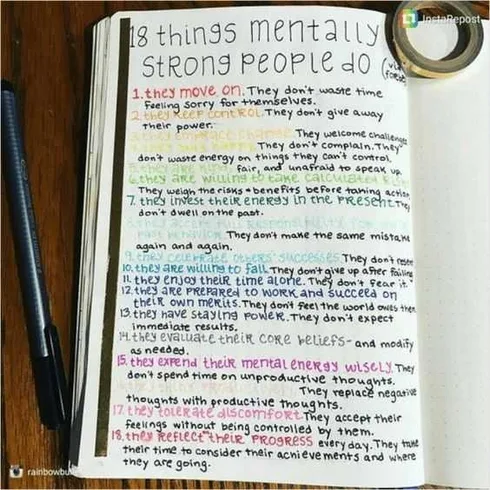 InstaRepost
18 things mentally
strong people do
1. they move on. They don't waste time
feeling sorry for themselves.
2. they keep control. They don't give away
their power.
3. they embrace change. They welcome challenges
They don't complain. They
don't waste energy on things they can't control.
fair, and unafraid to speak up.
6. they are willing to take calculated
They weigh the risks + benefits before taking action
7. they invest their energy in the present. They
don't dwell on the past.
8. they accept full responsibility for
past behavior. They don't make the same mistake
again and again.
9. they celebrate others' successes. They don't
10. they are willing to fail. They don't give up after failing
11. they enjoy their time alone. They don't fear it.
12. they are prepared to work and succeed on
their own merits. They don't feel the world owes them
13. they have staying power. They don't expect
immediate results.
14. they evaluate their core beliefs- and modify
as needed.
15. they expend their mental energy wisely. They
don't spend time on unproductive thoughts.
They replace negative
thoughts with productive thoughts.
17. they tolerate discomfort. They accept their
feelings without being controlled by them.
18. they reflect their progress every day. They take
their time to consider their achievements and where
they are going.